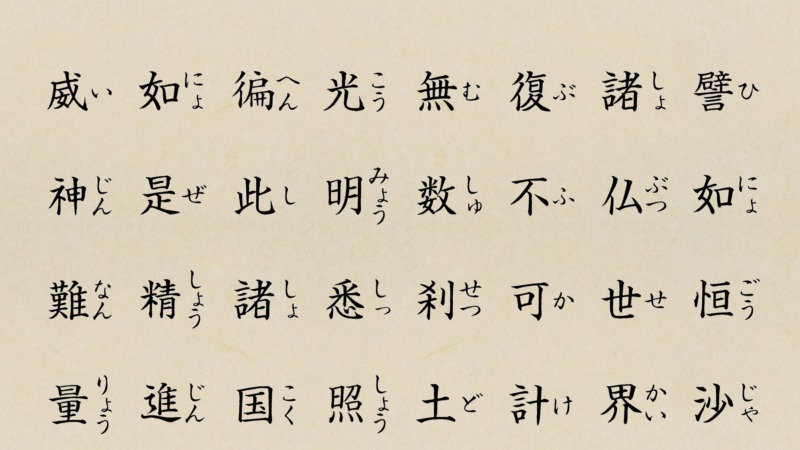 譬ひ如にょ恒ごう沙じゃ
諸しょ仏ぶつ世せ界かい
復ぶ不ふ可か計け
無む数しゅ刹せつ土ど
光こう明みょう悉しっ照しょう
徧へん此し諸しょ国こく
如にょ是ぜ精しょう進じん
威い神じん難なん量りょう